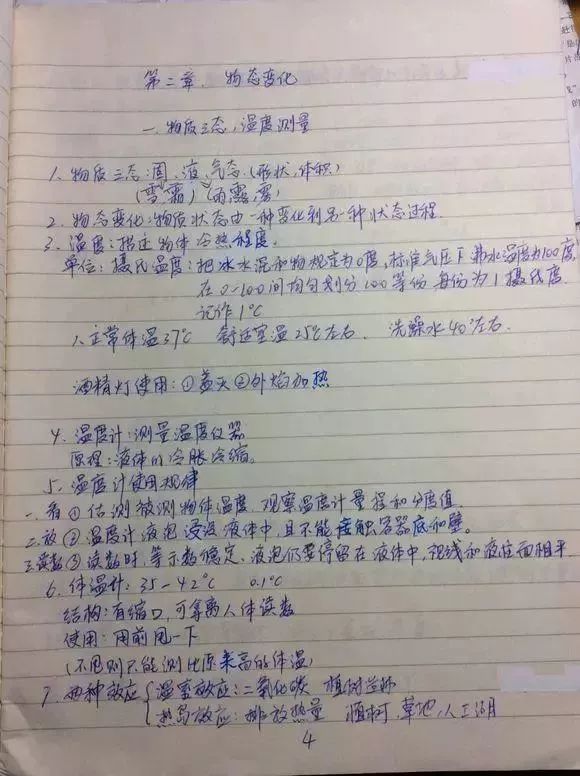 第二章、物态变化
一.物质三态,温度测量
1、物质三态:固、液、气态、(形状、体积)
(雪、霜)(雨、露、雾)
2、物态变化:物质状态由一种变化到另一种状态过程.
3、温度:描述物体冷热程度。
单位:摄氏温度:把冰水混和物规定为0度,标准气压下沸水温度为100度,
在0-100间均匀划分100等份每份为1摄氏度
记作1℃
人正常体温37℃ 舒适室温25℃左右. 洗澡水40°左右.
酒精灯使用:①盖灭②外焰加热
4、温度计:测量温度仪器
原理:液体的冷胀冷缩。
5、温度计使用规律
一.看①估测被测物体温度,观察温度计量程和分度值.
二.放②温度计液泡浸没液体中,且不能接触容器底和壁。
三.读数③读数时,等示数稳定、液泡仍要停留在液体中,视线和液柱面相平
6、体温计:35-42℃ 0.1℃
结构:有缩口,可拿离人体读数
使用:用前甩一下
(不甩则只能测比原来高的体温)
7、两种效应{温室效应:二氧化碳 植树造林
热岛效应:排放热量 植树,草地,人工湖
4